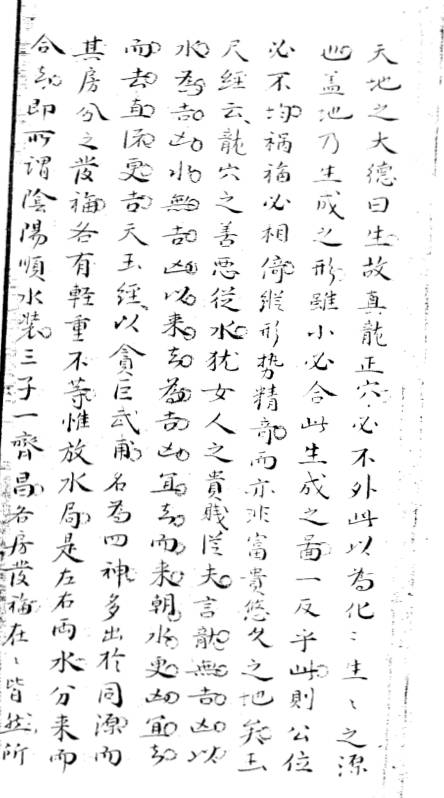 天地之大德曰生故真龍正穴必不外此以為化〻生〻之源
也盖地乃生成之形雖小必合此生成之圖一反乎此則公位
必不均禍福必相倚縱形势精奇而亦非富貴悠久之地矣玉
尺經云龍穴之善悪從水犹女人之貴賤從夫言龍無吉凶以
水為吉凶水無吉凶以来去為吉凶宜去而来朝水更凶宜去
而去直流更吉天玉經以貪巨武輔名為四神多出於同源而
其房分之發福各有輕重不等惟放水局是左右两水分来而
合去即所謂陰陽順水装三子一齊昌各房發福在〻皆然所